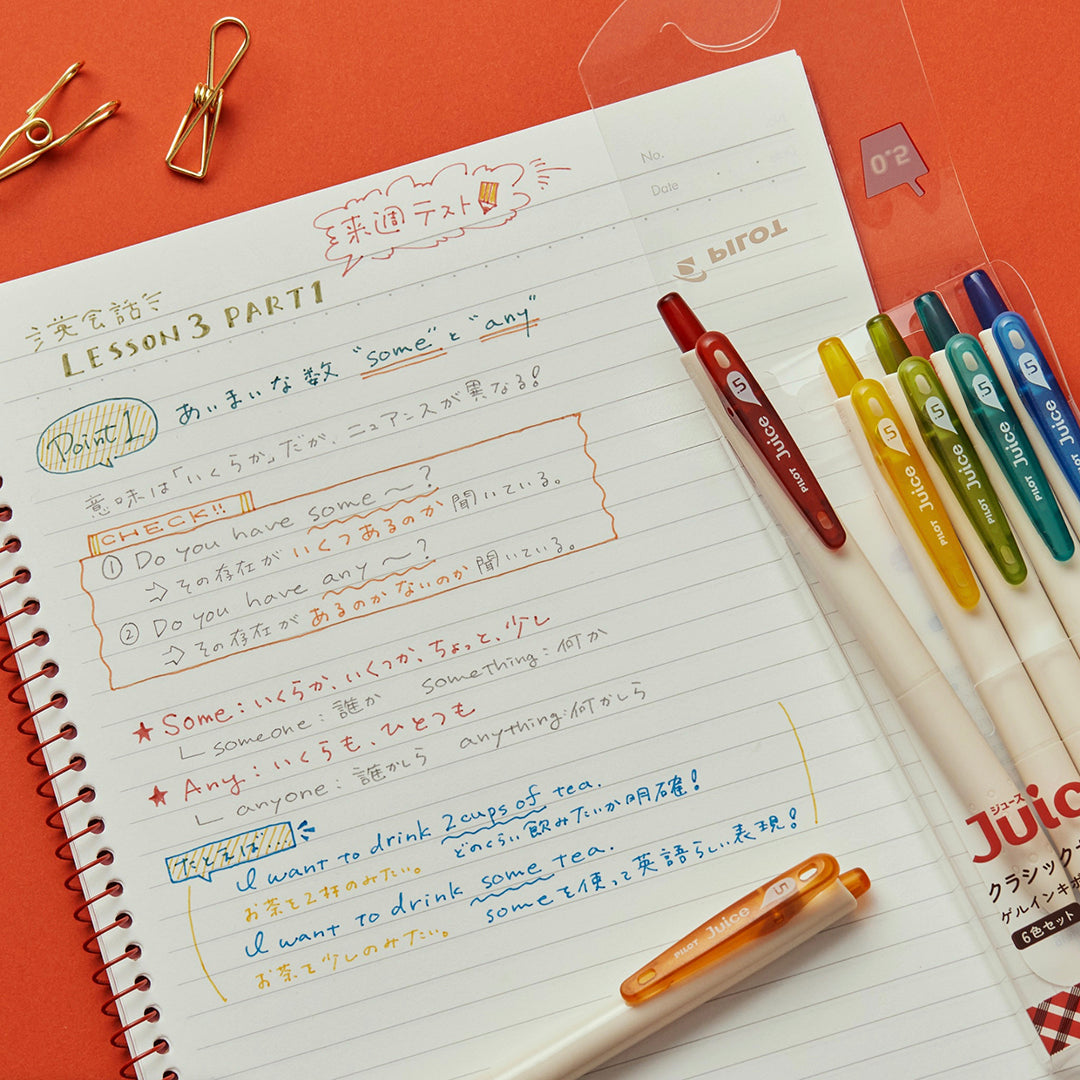 来週テスト
No.
Date
英会話
LESSON 3 PART 1
Point 1
あいまいな数 "some" と "any"
意味は「いくらか」だが、ニュアンスが異なる!
CHECK!!
① Do you have some ~?
⇨ その存在がいくつあるのか聞いている。
② Do you have any ~?
⇨ その存在があるのかないのか聞いている。
★ Some: いくらか、いくつか、ちょっと、少し
someone: 誰か something: 何か
★ Any: いくらも、ひとつも
anyone: 誰かしら anything: 何かしら
たとえば...
I want to drink 2 cups of tea.
お茶を2杯のみたい。 どのくらい飲みたいか明確!
I want to drink some tea.
お茶を少しのみたい。 someを使って英語らしい表現!
PILOT
0.5
PILOT Juice 5
PILOT Juice 5
PILOT Juice 5
PILOT Juice 5
Juice 5
PILOT Juice 5
ジュース
Juic
クラシック
ゲルインキボ
6色セット